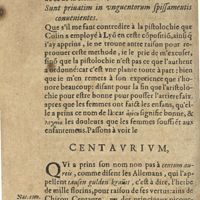 Sunt priuatim in vnguentorum spissamentis
conuenientes.
Que s'il me faut contredire à la pistolochie que
Colin a employé à Lyō en ceste cōposition, ainsi q
i'ay apprins, ie ne trouue autre raison pour re-
prouuer ceste methode, ie le prie de m'excuser,
sinō que la pistolochie n'est pas ce que l'autheur
a ordonné: car c'est vne plante toute à part: bien
que ie m'en remets à son experience que l'ho-
nore beaucoup: disant pour la bonté de l'aristo-
lochie, qu'elle est fort bonne pour ayder aux arrie-
refais que les femmes ont faict les enfans, qu'el-
le a prins ce nom de là: car signifie bonne, &
les douleurs que les femmes souffrēt aux
enfantemens. Passons à voir le
CENTAVRIVM,
QVi a prins son nom non pas à centum au-
reis, comme disent les Allemans, qui l'ap-
pellent tausen gulden kraut, c'est à dire, l'herbe
de mille florins, pour raison de ses vertus: ains de
Chiron Centaure,